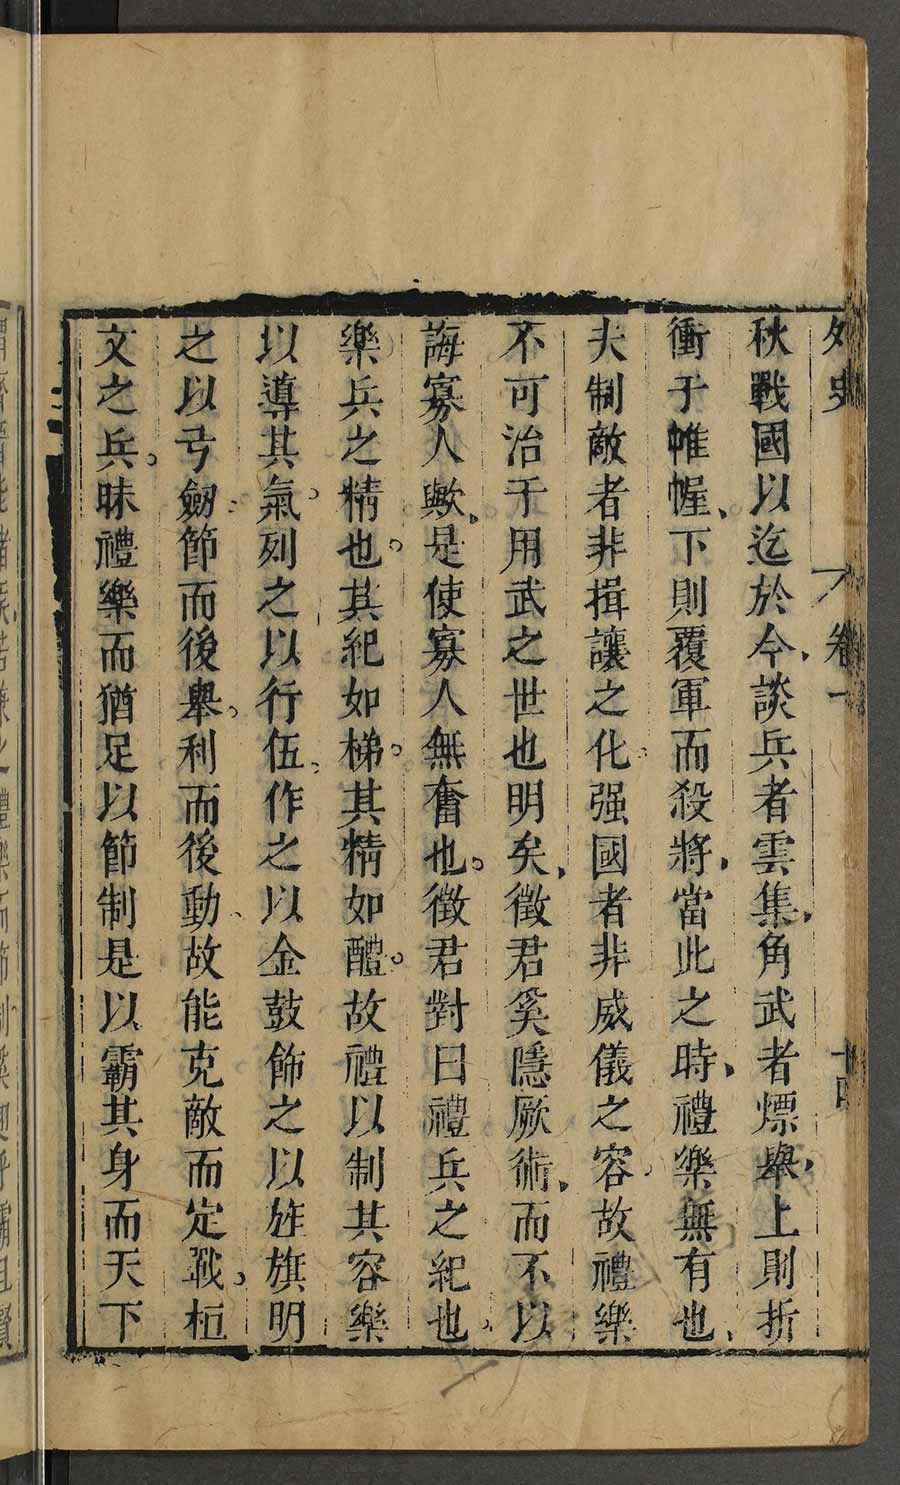 外史
卷一
十四
秋戰國以迄於今談兵者雲集角武者熛舉上則折
衝于帷幄下則覆軍而殺將當此之時禮樂無有也
夫制敵者非揖讓之化强國者非威儀之容故禮樂
不可治于用武之世也明矣徵君奚隱厥術而不以
誨寡人歟是使寡人無奮也徵君對曰禮兵之紀也
樂兵之精也其紀如梯其精如醴故禮以制其容樂
以導其氣列之以行伍作之以金鼓飾之以旌旗明
之以弓劒節而後舉利而後動故能克敵而定戰桓
文之兵昧禮樂而猶足以節制是以霸其身而天下